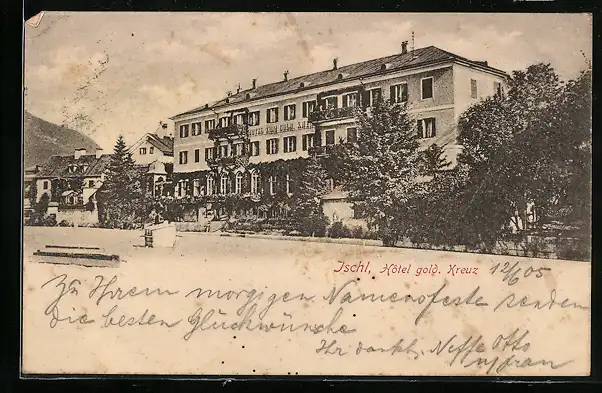 HOTEL
Ischl, Hôtel gold. Kreuz 12/6 05
Zu Ihrem morgigen Namensfeste senden
die besten Glückwünsche
Ihr dankb. Neffe Otto
u/ frau